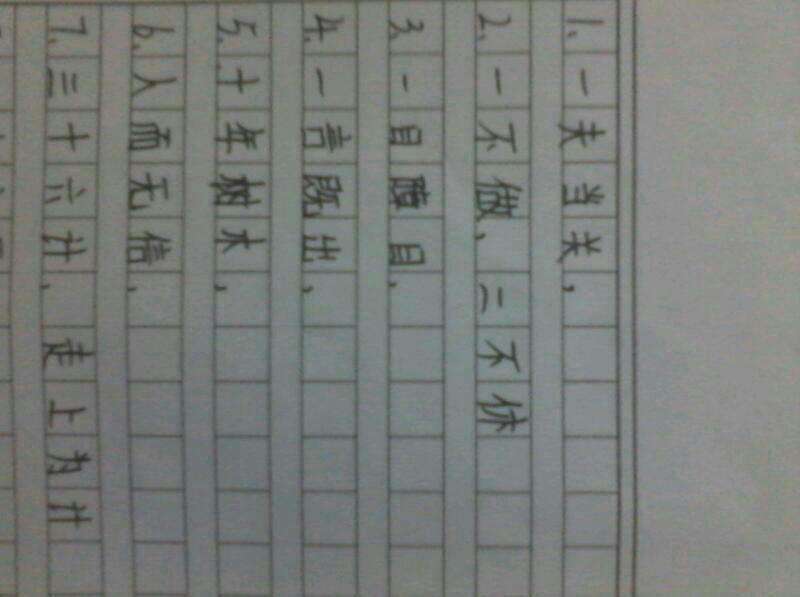 1、一夫当关，
2、一不做，二不休
3、一目 目，
4、一言既出，
5、十年树木，
6、人而无信，
7、三十六计，走上为计